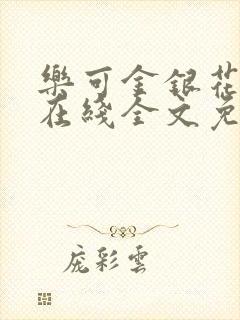 樂可金銀花
在綫全文免
庞彩雲